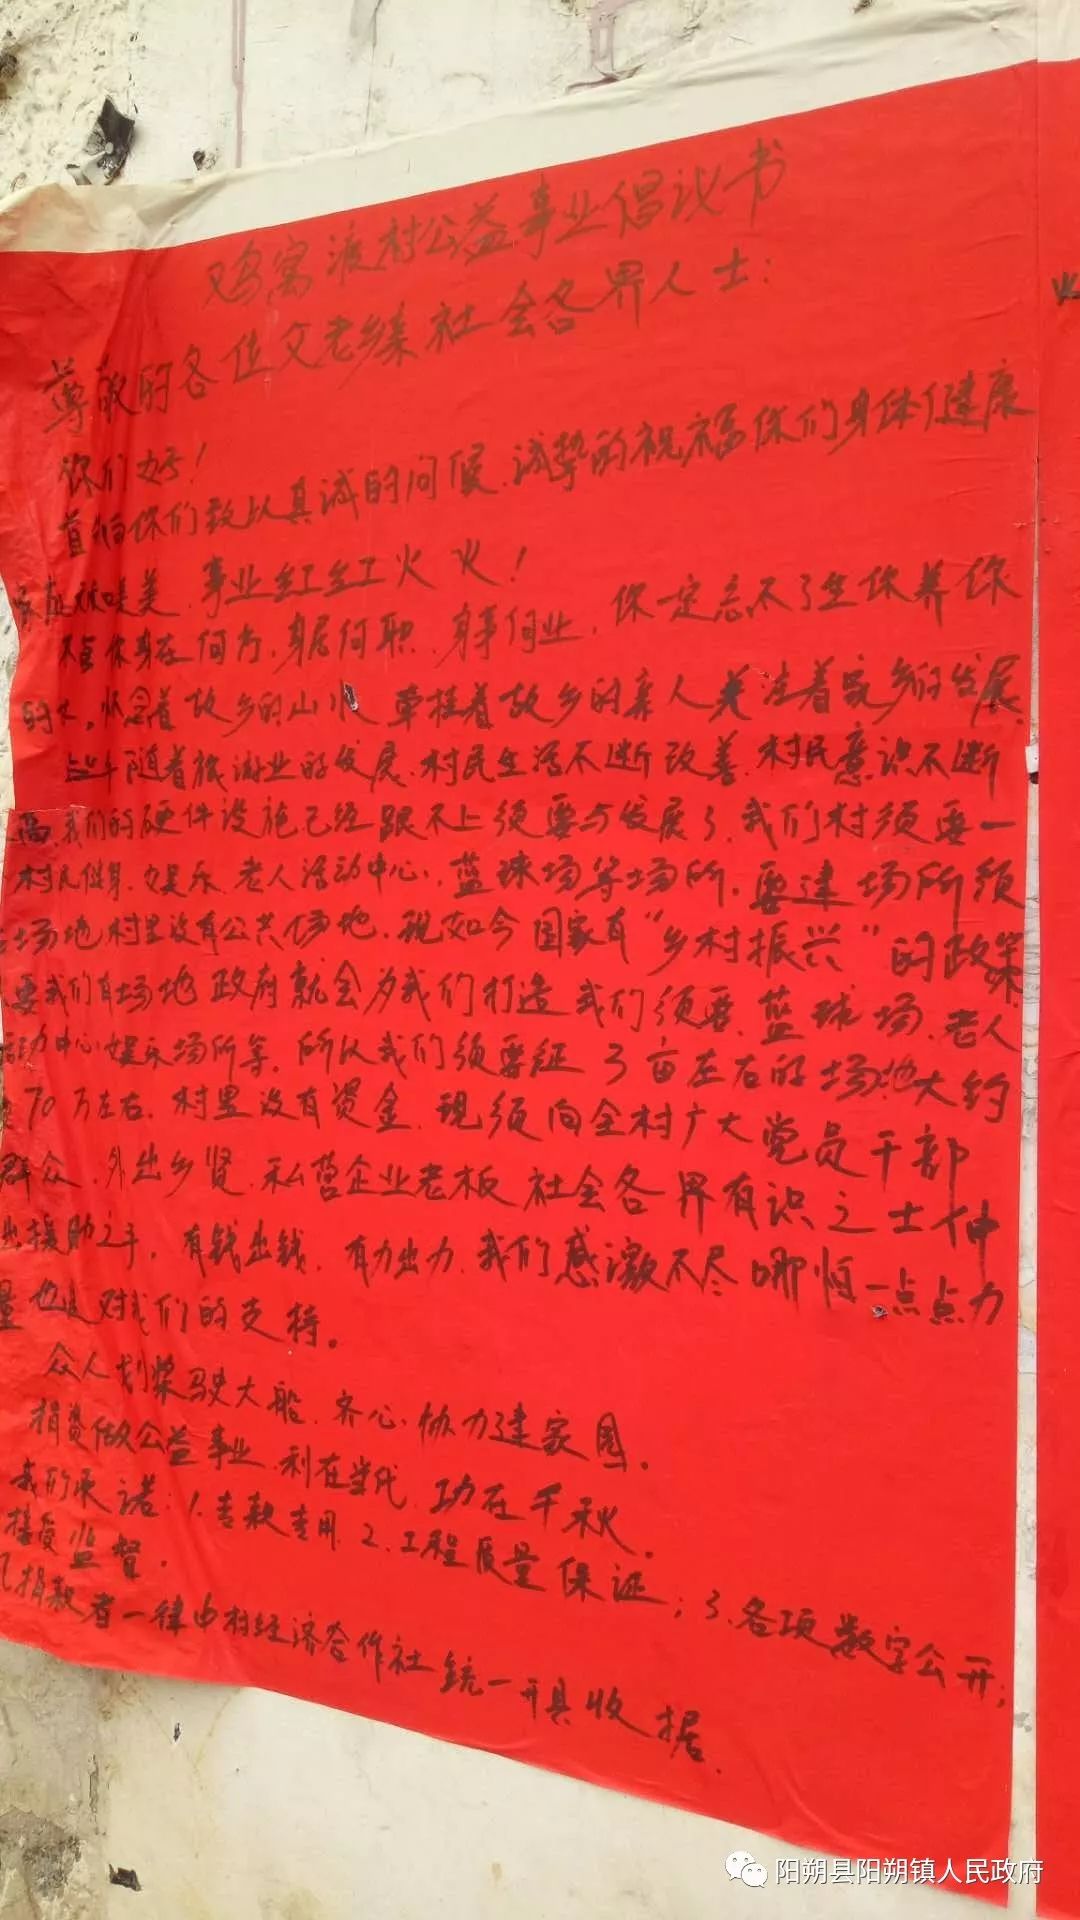 鸡窝渡村公益事业倡议书
尊敬的各位父老乡亲社会各界人士：
你们好！
首先向你们致以真诚的问候.诚挚的祝福你们身体健康
家庭和美.事业红红火火！
不管你身在何方,身居何职.身事何业,你一定忘不了生你养你
的土,怀念着故乡的山水牵挂着故乡的亲人关注着家乡的发展.
随着旅游业的发展.村民生活不断改善.村民意识不断
高我们的硬件设施已经跟不上须要与发展了.我们村须要一
村民健身.娱乐.老人活动中心,蓝球场等场所.要建场所须
场地村里没有公共场地.现如今国家有“乡村振兴”的政策
要我们有场地政府就会为我们打造我们须要.蓝球场.老人
活动中心娱乐场所等.所以我们须要征3亩左右的场地大约
70万左右.村里没有资金.现须向全村广大党员干部
群众.外出乡贤.私营企业老板社会各界有识之士伸
出援助之手,有钱出钱.有力出力.我们感激不尽哪怕一点点力
量也是对我们的支持。
众人划桨驶大船.齐心协力建家园。
捐资做公益事业.利在当代.功在千秋。
我们承诺:1.专款专用.2.工程质量保证；3.各项数字公开；
接受监督.
凡捐款者一律由村经济合作社统一开具收据.
阳朔县阳朔镇人民政府